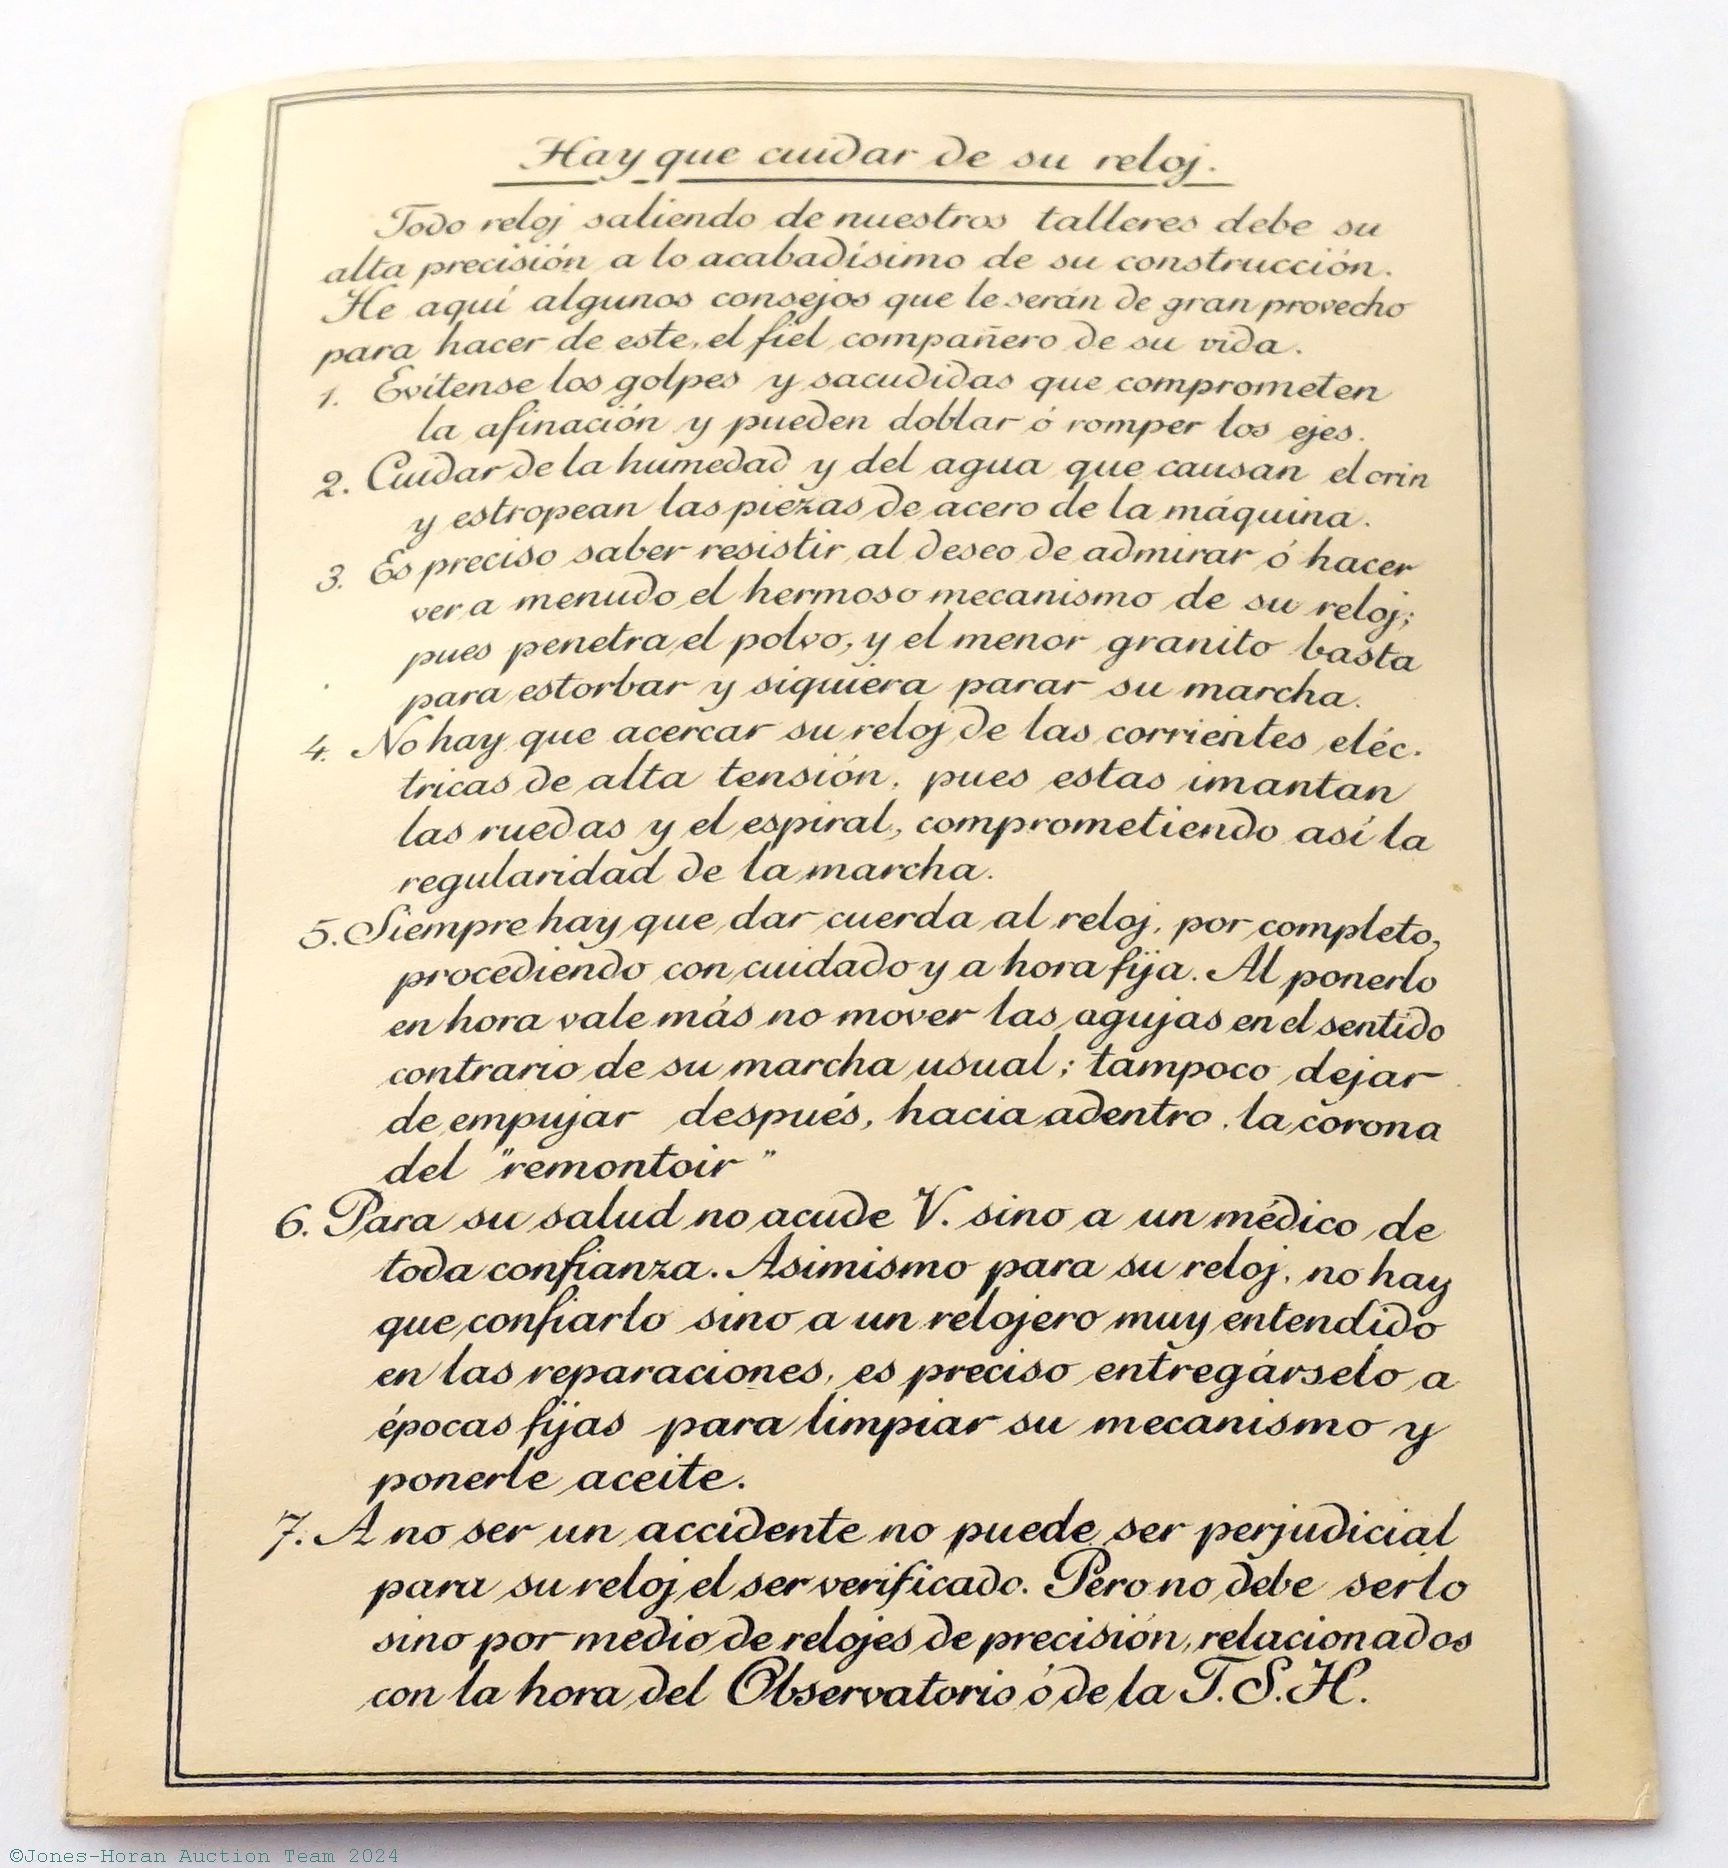 Hay que cuidar de su reloj.
Todo reloj saliendo de nuestros talleres debe su
alta precisión a lo acabadísimo de su construcción.
He aquí algunos consejos que le serán de gran provecho
para hacer de este, el fiel compañero de su vida.
1. Evítense los golpes y sacudidas que comprometen
la afinación y pueden doblar ó romper los ejes.
2. Cuidar de la humedad y del agua que causan el orin
y estropean las piezas de acero de la máquina.
3. Es preciso saber resistir al deseo de admirar ó hacer
ver a menudo el hermoso mecanismo de su reloj;
pues penetra el polvo, y el menor granito basta
para estorbar y siquiera parar su marcha.
4. No hay que acercar su reloj de las corrientes eléc-
tricas de alta tensión, pues estas imantan
las ruedas y el espiral, comprometiendo así la
regularidad de la marcha.
5. Siempre hay que dar cuerda al reloj, por completo,
procediendo con cuidado y a hora fija. Al ponerlo
en hora vale más no mover las agujas en el sentido
contrario de su marcha usual; tampoco dejar
de empujar después, hacia adentro, la corona
del "remontoir"
6. Para su salud no acude V. sino a un médico de
toda confianza. Asimismo para su reloj, no hay
que confiarlo sino a un relojero muy entendido
en las reparaciones, es preciso entregárselo a
épocas fijas para limpiar su mecanismo y
ponerle aceite.
7. A no ser un accidente no puede ser perjudicial
para su reloj el ser verificado. Pero no debe serlo
sino por medio de relojes de precisión, relacionados
con la hora del Observatorio ó de la T.S.H.
©Jones-Horan Auction Team 2024